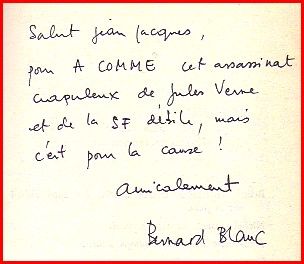 Salut Jean Jacques,
pour A COMME cet assassinat
crapuleux de Jules Verne
et de la SF débile, mais
c'est pour la cause !
amicalement
Bernard Blanc